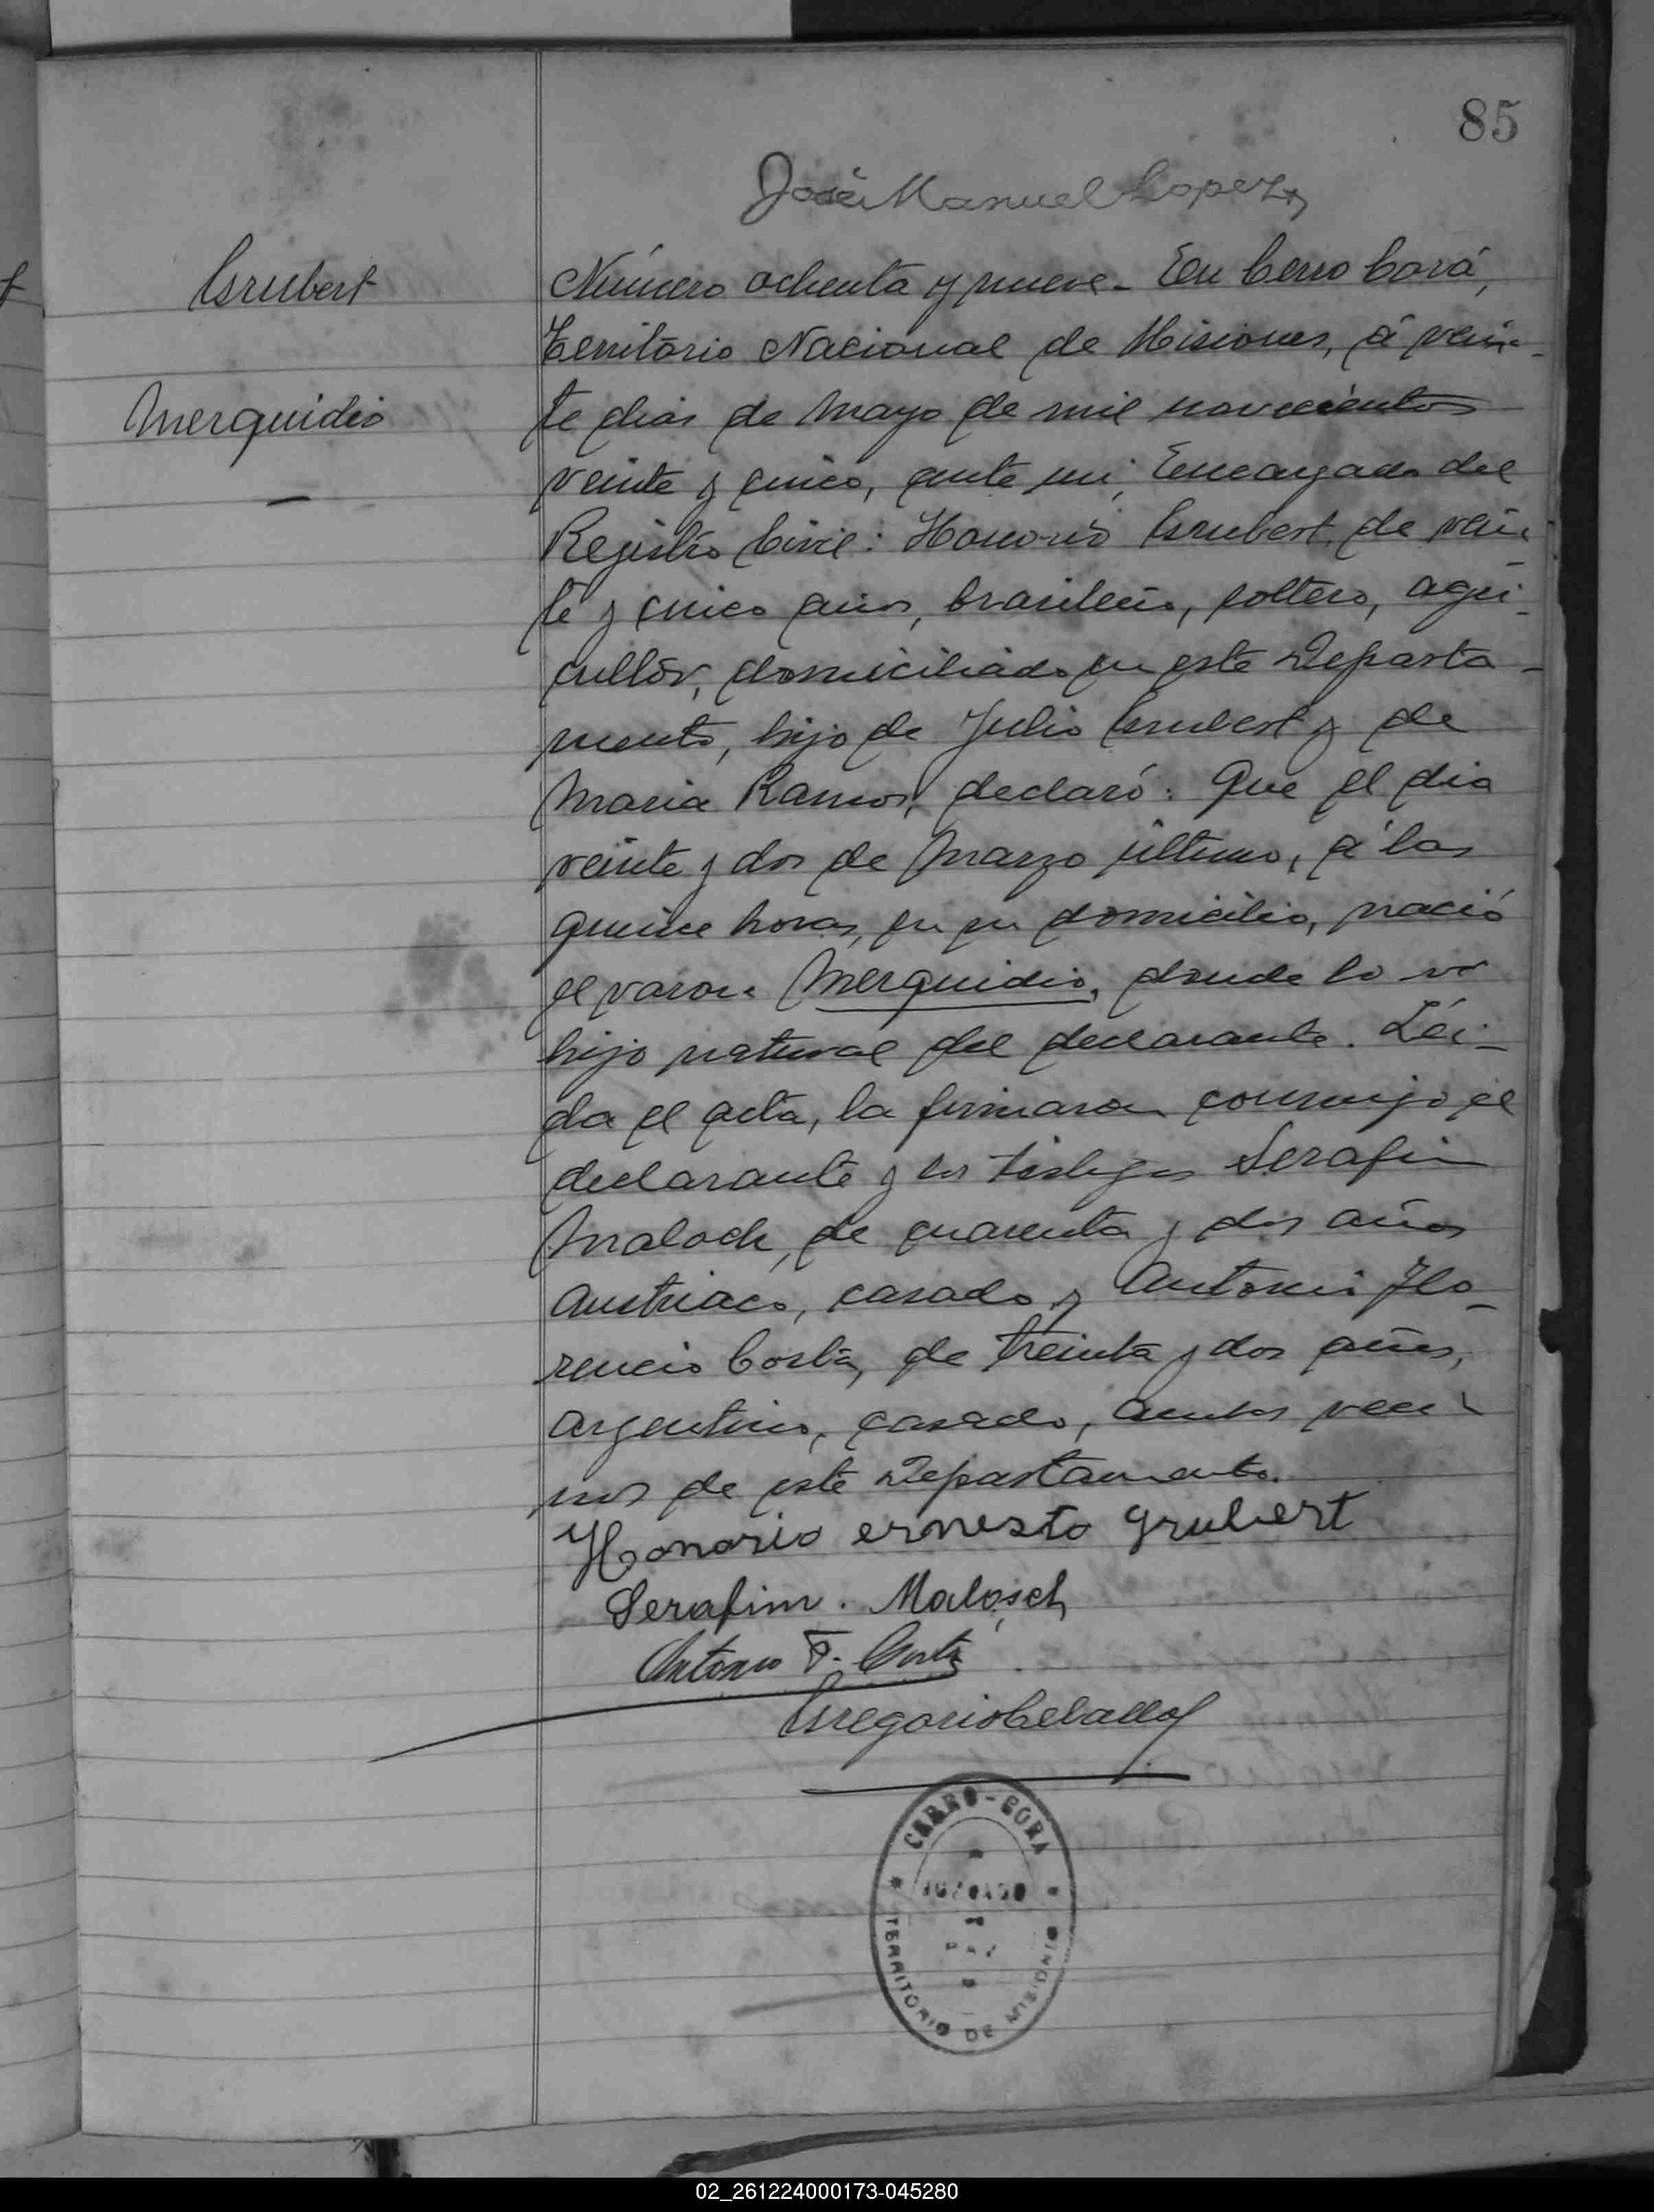 85
José Manuel Lopez
Grubert
Merquidio
Número ochenta y nueve - En Cerro Corá,
Territorio Nacional de Misiones, á vein-
te dias de Mayo de mil novecientos
veinte y cinco, ante mi, Encargado del
Registro Civil: Honorio Grubert, de vein-
te y cinco años, brasileño, soltero, agri-
cultor, domiciliado en este Departa-
mento, hijo de Julio Grubert y de
Maria Ramos, declaró: Que el dia
veinte y dos de Marzo último, á las
quince horas, en su domicilio, nació
el varon Merquidio, donde lo vi
hijo natural del declarante. Léi-
da el acta, la firmaron conmigo el
declarante y los testigos Serafin
Maloch, de cuarenta y dos años
austriaco, casado y Antonio Flo-
rencio Costa, de treinta y dos años,
argentino, casado, ambos veci-
nos de este Departamento.
Honorio ernesto grubert
Serafim. Malosch
Antonio F. Costa
Gregorio Ceballos
CERRO-CORA
JUZGADO
DE
PAZ
TERRITORIO DE MISIONES
02_261224000173-045280